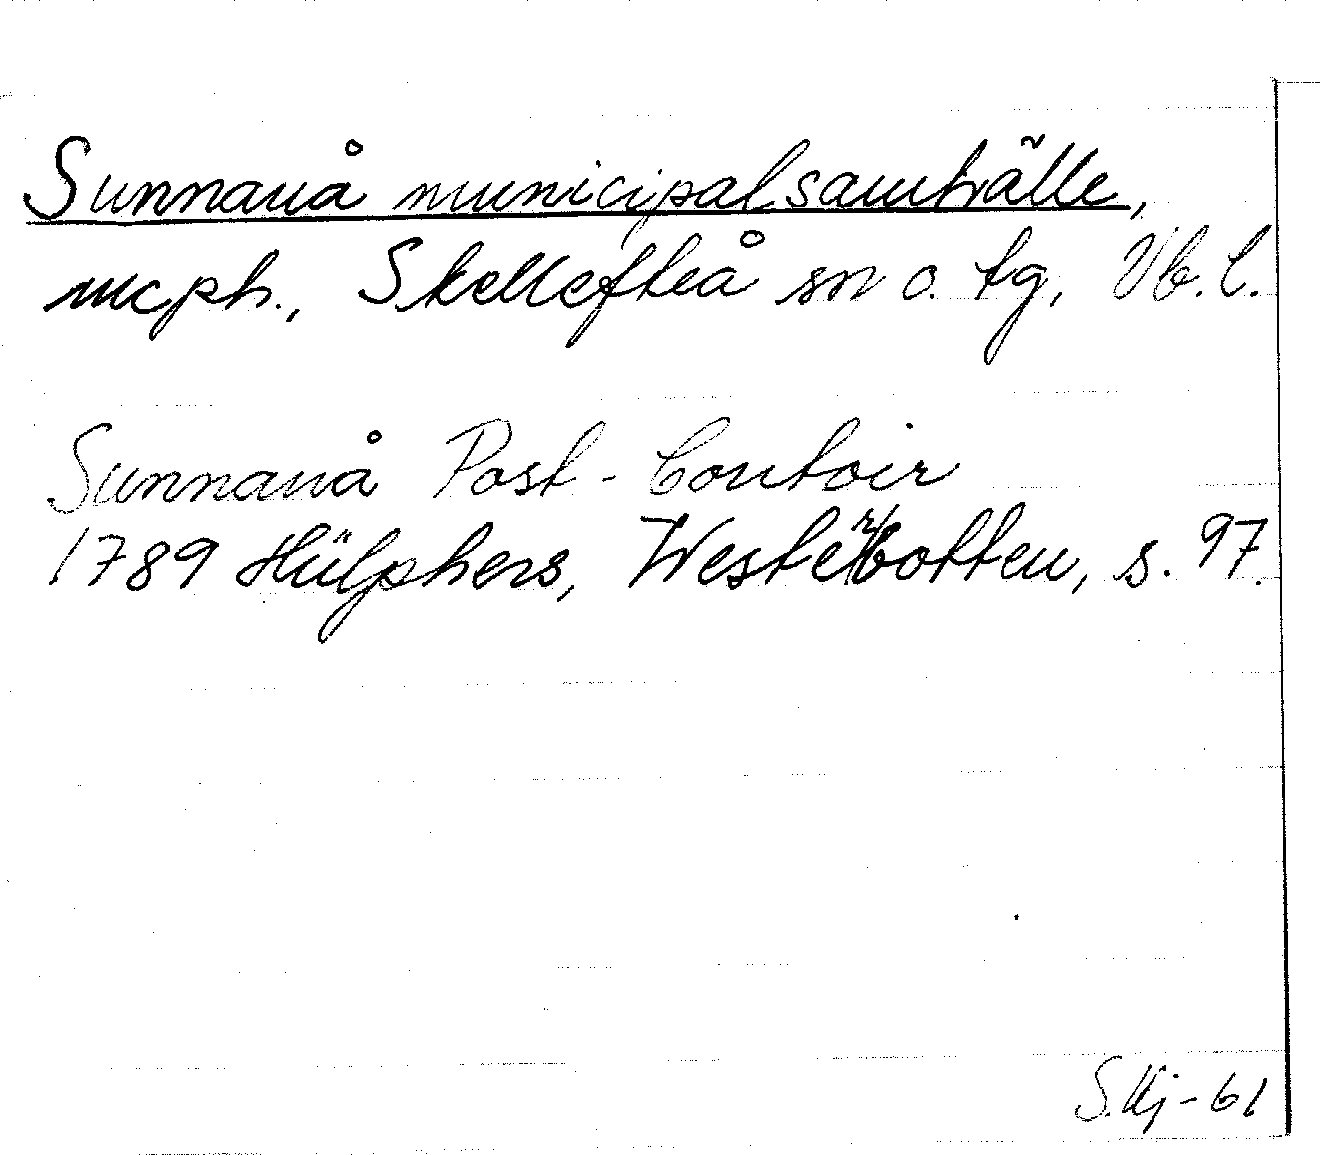 Sunnanå municipalsamhälle,
mcph., Skellefteå sn o. tg, Vb. l.
Sunnanå Post-Contoir
1789 Hülphers, Westerbotten, s. 97.
S.Kj-61